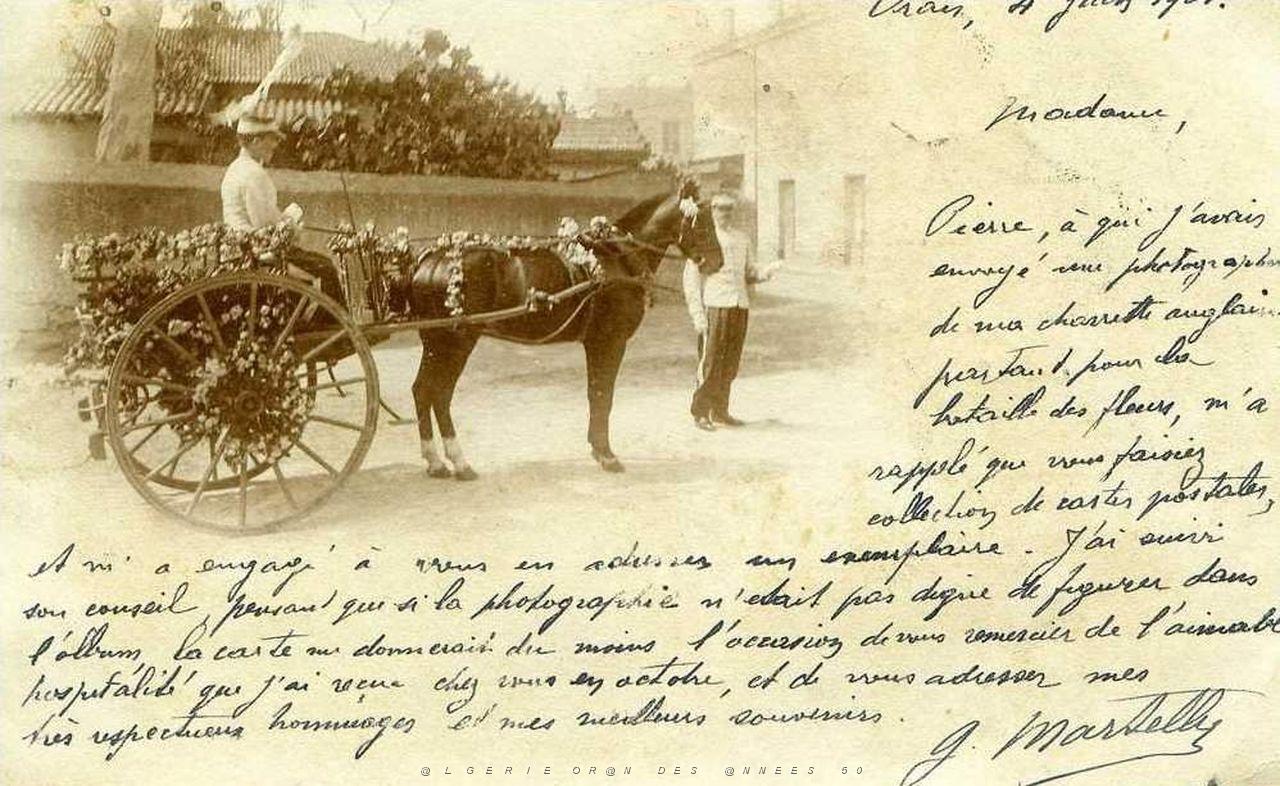 Oran, 4 Juin 1901.
Madame,
Pierre, à qui j'avais
envoyé une photographie
de ma charrette anglaise
partant pour la
bataille des fleurs, m'a
rappelé que vous faisiez
collection de cartes postales,
et m'a engagé à vous en adresser un exemplaire. J'ai suivi
son conseil, pensant que si la photographie n'était pas digne de figurer dans
l'album, la carte me donnerait du moins l'occasion de vous remercier de l'aimable
hospitalité que j'ai reçue chez vous en octobre, et de vous adresser mes
très respectueux hommages et mes meilleurs souvenirs.
G. Martelly
@LGERIE OR@N DES @NNEES 50